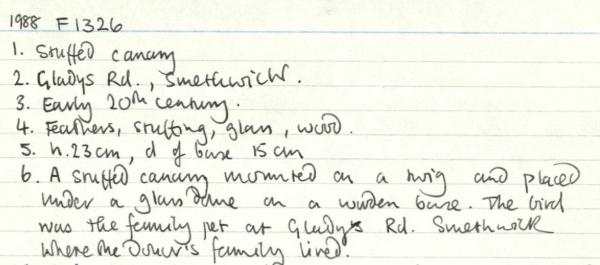 1988 F1326
1. Stuffed canary
2. Gladys Rd., Smethwick.
3. Early 20th century.
4. Feathers, stuffing, glass, wood.
5. h.23cm, d of base 15cm
6. A stuffed canary mounted on a twig and placed
under a glass dome on a wooden base. The bird
was the family pet at Gladys Rd. Smethwick
where the Donor's family lived.